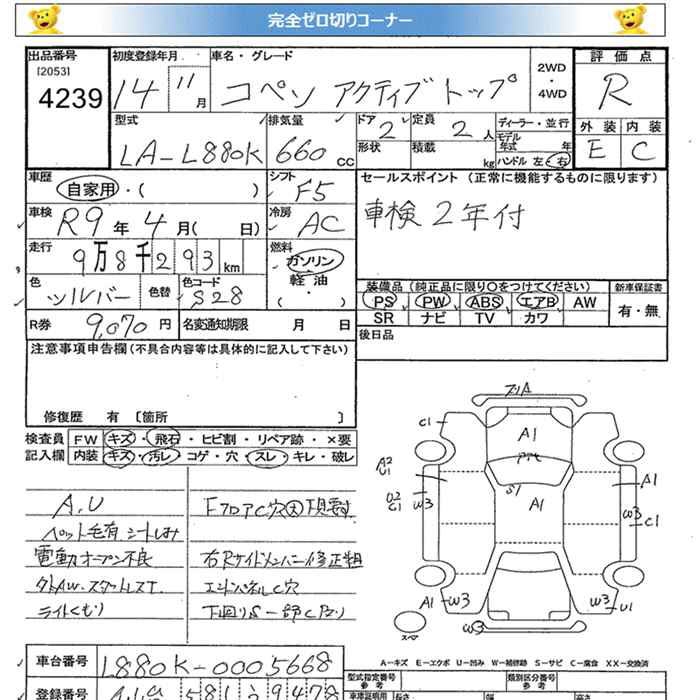 完全ゼロ切りコーナー
出品番号 初度登録年月 車名・グレード 評価点
[2053]
4239 14 11月 コペン アクティブトップ 2WD・4WD R
型式 排気量 ドア 定員 ディーラー・並行 外装 内装
LA-L880K 660cc 2 2人 モデル年式 年 E C
形状 積載 kg ハンドル 左・右
車歴 シフト セールスポイント(正常に機能するものに限ります)
自家用・( ) F5
車検 冷房 車検2年付
R9年4月( 日) AC
走行 燃料
9万8千293km ガソリン
軽油
色 色替 色コード 装備品(純正品に限り〇をつけてください) 新車保証書
シルバー S28 ( ・ ) PS PW ABS エアB AW 有・無
SR ナビ TV カワ
R券 9,070円 名変通知期限 月 日 後日品
注意事項申告欄(不具合内容等は具体的に記入して下さい)
修復歴 有 [箇所 ]
検査員 FW キズ・飛石・ヒビ割・リペア跡・×要
記入欄 内装 キズ・汚レ・コゲ・穴・スレ・キレ・破レ
A,U FフロアC穴大下見要す
ペット毛有 シートしみ
電動オープン不良 右Rサイドメンバー修正粗
タトAW.スタットレスT. エンドパネルC穴
ライトくもり 下回りS一部C穴有
C1
A1
S1
A1
A2
U1
U2
C1
W3
A1
W3
C1
A1
W3
W3
U1
W3
スペア
A-キズ E-エクボ U-凹み W-補修跡 S-サビ C-腐食 XX-交換済
車台番号 L880K-0005668
型式指定番号 類別区分番号
参考 参考
登録番号 581 9478
車庫証明用 長さ 幅 高さ